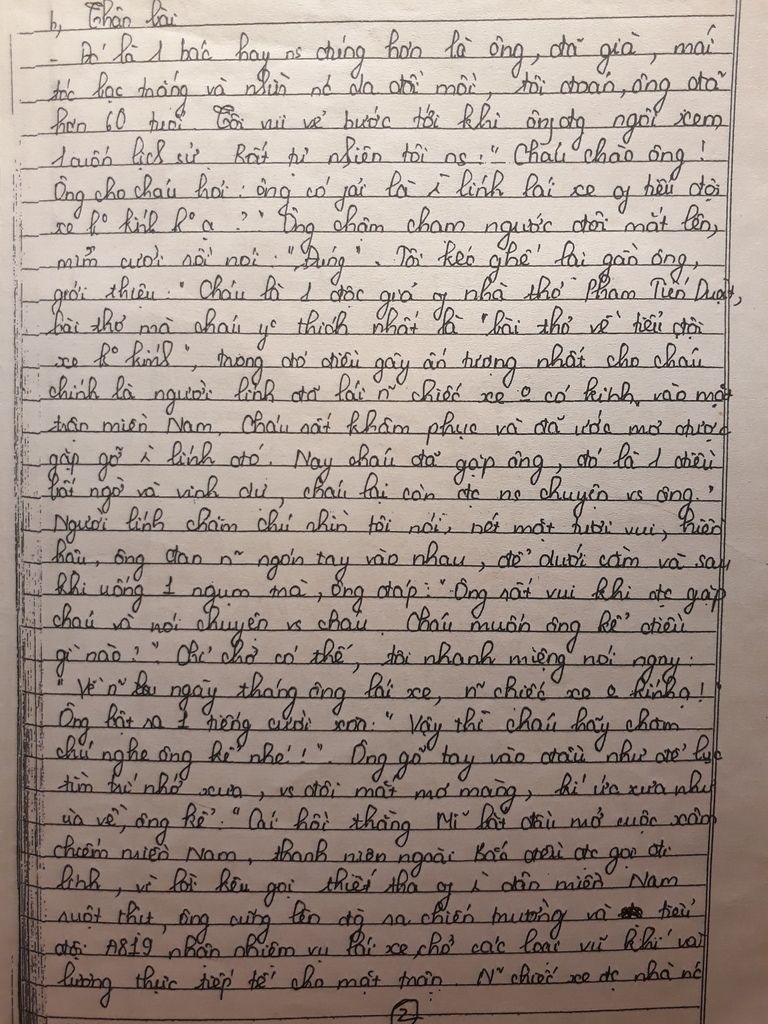 b, Thân bài
- Đó là 1 bác hay ns đúng hơn là ông, đã già, mái
tóc bạc trắng và nhìn nó da đồi mồi, tôi đoán, ông đã
hơn 60 tuổi. Tôi vui vẻ bước tới khi ông đg ngồi xem
1 cuốn lịch sử. Rất tự nhiên tôi ns: "Cháu chào ông!
Ông cho cháu hỏi: ông có phải là lính lái xe of tiểu đội
xe ko kính ko ạ?" Ông chầm chậm ngước đôi mắt lên,
mỉm cười rồi nói: "Đúng". Tôi kéo ghế lại gần ông,
giới thiệu: "Cháu là 1 độc giả of nhà thơ Phạm Tiến Duật,
bài thơ mà cháu yc thích nhất là "bài thơ về tiểu đội
xe ko kính", trong đó điều gây ấn tượng nhất cho cháu
chính là người lính đã lái n~ chiếc xe o có kính vào mặt
trận miền Nam. Cháu rất khâm phục và đã ước mơ được
gặp gỡ lính đó. Nay cháu đã gặp ông, đó là 1 điều
bất ngờ và vinh dự, cháu lại còn đc ns chuyện vs ông."
Người lính chăm chú nhìn tôi nói, nét mặt tươi vui, hiền
hậu, ông đan n~ ngón tay vào nhau, để dưới cằm và sau
khi uống 1 ngụm trà, ông đáp: "Ông rất vui khi đc gặp
cháu và nói chuyện vs cháu. Cháu muốn ông kể điều
gì nào?". Chỉ chờ có thế, tôi nhanh miệng nói ngay:
"Về n~ ngày tháng ông lái xe, n~ chiếc xe o kính ạ!"
Ông bật ra 1 tiếng cười xòa: "Vậy thì cháu hãy chăm
chú nghe ông kể nhé!". Ông gõ tay vào đầu như để lục
tìm trí nhớ xưa, vs đôi mắt mơ màng, kí ức xưa như
ùa về, ông kể: "Cái hồi thằng Mĩ bắt đầu mở cuộc xâm
chiếm miền Nam, thanh niên ngoài Bắc đều đc gọi đi
lính, vì lời kêu gọi thiết tha of dân miền Nam
ruột thịt, ông cũng lên đg ra chiến trường và tiểu
đội A819 nhận nhiệm vụ lái xe, chở các loại vũ khí và
lương thực tiếp tế cho mặt trận. N~ chiếc xe đc nhà nc
2